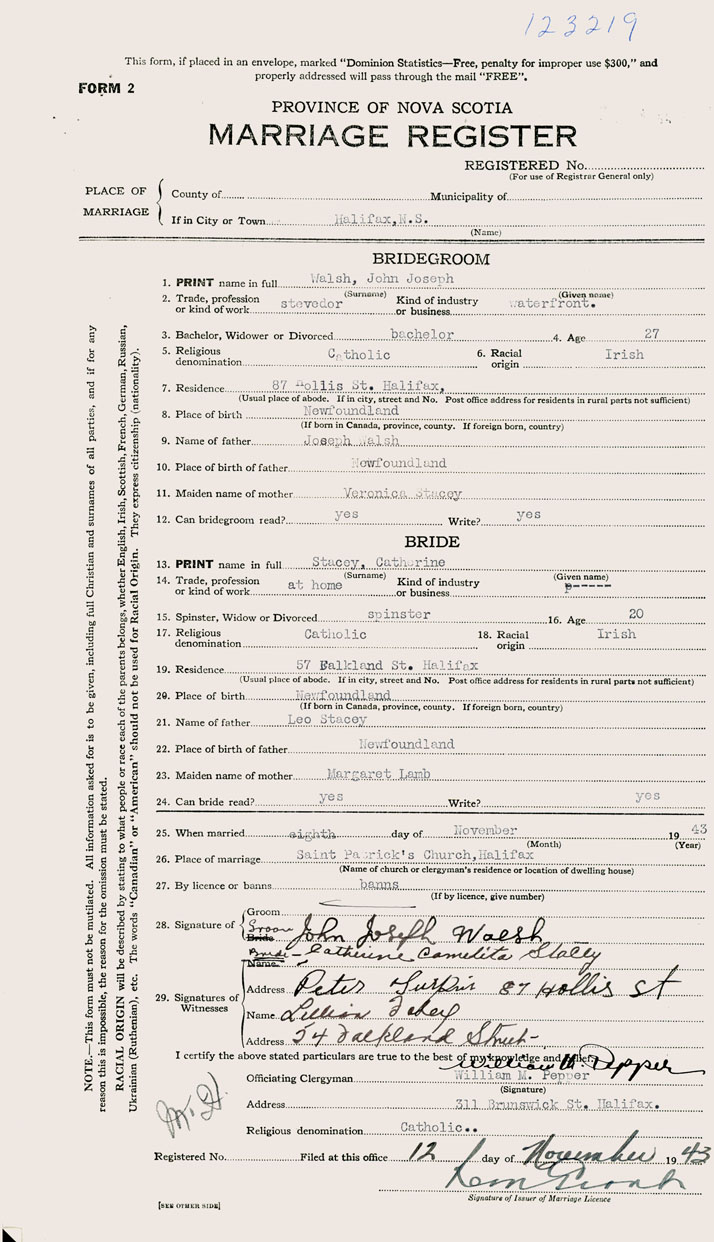 123219
This form, if placed in an envelope, marked "Dominion Statistics—Free, penalty for improper use $300," and
properly addressed will pass through the mail "FREE".
FORM 2
PROVINCE OF NOVA SCOTIA
MARRIAGE REGISTER
REGISTERED No.
(For use of Registrar General only)
PLACE OF MARRIAGE
County of Municipality of
If in City or Town Halifax,N.S.
(Name)
BRIDEGROOM
1. PRINT name in full Walsh, John Joseph
(Surname) (Given name)
2. Trade, profession or kind of work stevedor Kind of industry or business waterfront.
3. Bachelor, Widower or Divorced bachelor 4. Age 27
5. Religious denomination Catholic 6. Racial origin Irish
7. Residence 87 Hollis St. Halifax,
(Usual place of abode. If in city, street and No. Post office address for residents in rural parts not sufficient)
8. Place of birth Newfoundland
(If born in Canada, province, county. If foreign born, country)
9. Name of father Joseph Walsh
10. Place of birth of father Newfoundland
11. Maiden name of mother Veronica Stacey
12. Can bridegroom read? yes Write? yes
BRIDE
13. PRINT name in full Stacey, Catherine
(Surname) (Given name)
14. Trade, profession or kind of work at home Kind of industry or business -----
15. Spinster, Widow or Divorced spinster 16. Age 20
17. Religious denomination Catholic 18. Racial origin Irish
19. Residence 57 Falkland St. Halifax
(Usual place of abode. If in city, street and No. Post office address for residents in rural parts not sufficient)
20. Place of birth Newfoundland
(If born in Canada, province, county. If foreign born, country)
21. Name of father Leo Stacey
22. Place of birth of father Newfoundland
23. Maiden name of mother Margaret Lamb
24. Can bride read? yes Write? yes
25. When married eighth day of November 1943
(Month) (Year)
26. Place of marriage Saint Patrick's Church,Halifax
(Name of church or clergyman's residence or location of dwelling house)
27. By licence or banns banns
(If by licence, give number)
28. Signature of
Groom
Groom Bride John Joseph Walsh
Bride- Name Catherine Camelita Stacey
29. Signatures of Witnesses
Address Peter 87 Hollis St
Name Lillian
Address 54 Falkland Street-
I certify the above stated particulars are true to the best of my knowledge and belief.
William M. Pepper
Officiating Clergyman William M. Pepper
(Signature)
Address 311 Brunswick St. Halifax.
Religious denomination Catholic..
Registered No. Filed at this office 12 day of November 1943
Signature of Issuer of Marriage Licence
[SEE OTHER SIDE]
NOTE.—This form must not be mutilated. All information asked for is to be given, including full Christian and surnames of all parties, and if for any
reason this is impossible, the reason for the omission must be stated.
RACIAL ORIGIN will be described by stating to what people or race each of the parents belongs, whether English, Irish, Scottish, French, German, Russian,
Ukrainian (Ruthenian), etc. The words "Canadian" or "American" should not be used for Racial Origin. They express citizenship (nationality).